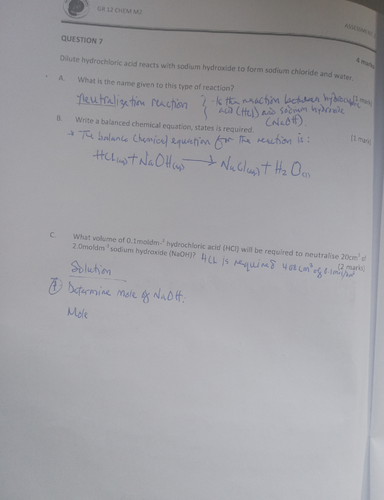 GR 12 CHEM M2
QUESTION 7
4 marks
Dilute hydrochloric acid reacts with sodium hydroxide to form sodium chloride and water.
A. What is the name given to this type of reaction?
Neutralization reaction
is the reaction between hydrochloric
acid (HCl) and sodium hydroxide
(NaOH)
B. Write a balanced chemical equation, states is required.
(1 mark)
→ The balance chemical equation for the reaction is:
HCl(aq) + NaOH(aq) → NaCl(aq) + H2O(l)
C. What volume of 0.1moldm⁻³ hydrochloric acid (HCl) will be required to neutralise 20cm³ of
2.0moldm⁻³ sodium hydroxide (NaOH)?
(2 marks)
HCl is required 400cm³ of 0.1
Solution
① Determine mole of NaOH:
Mole